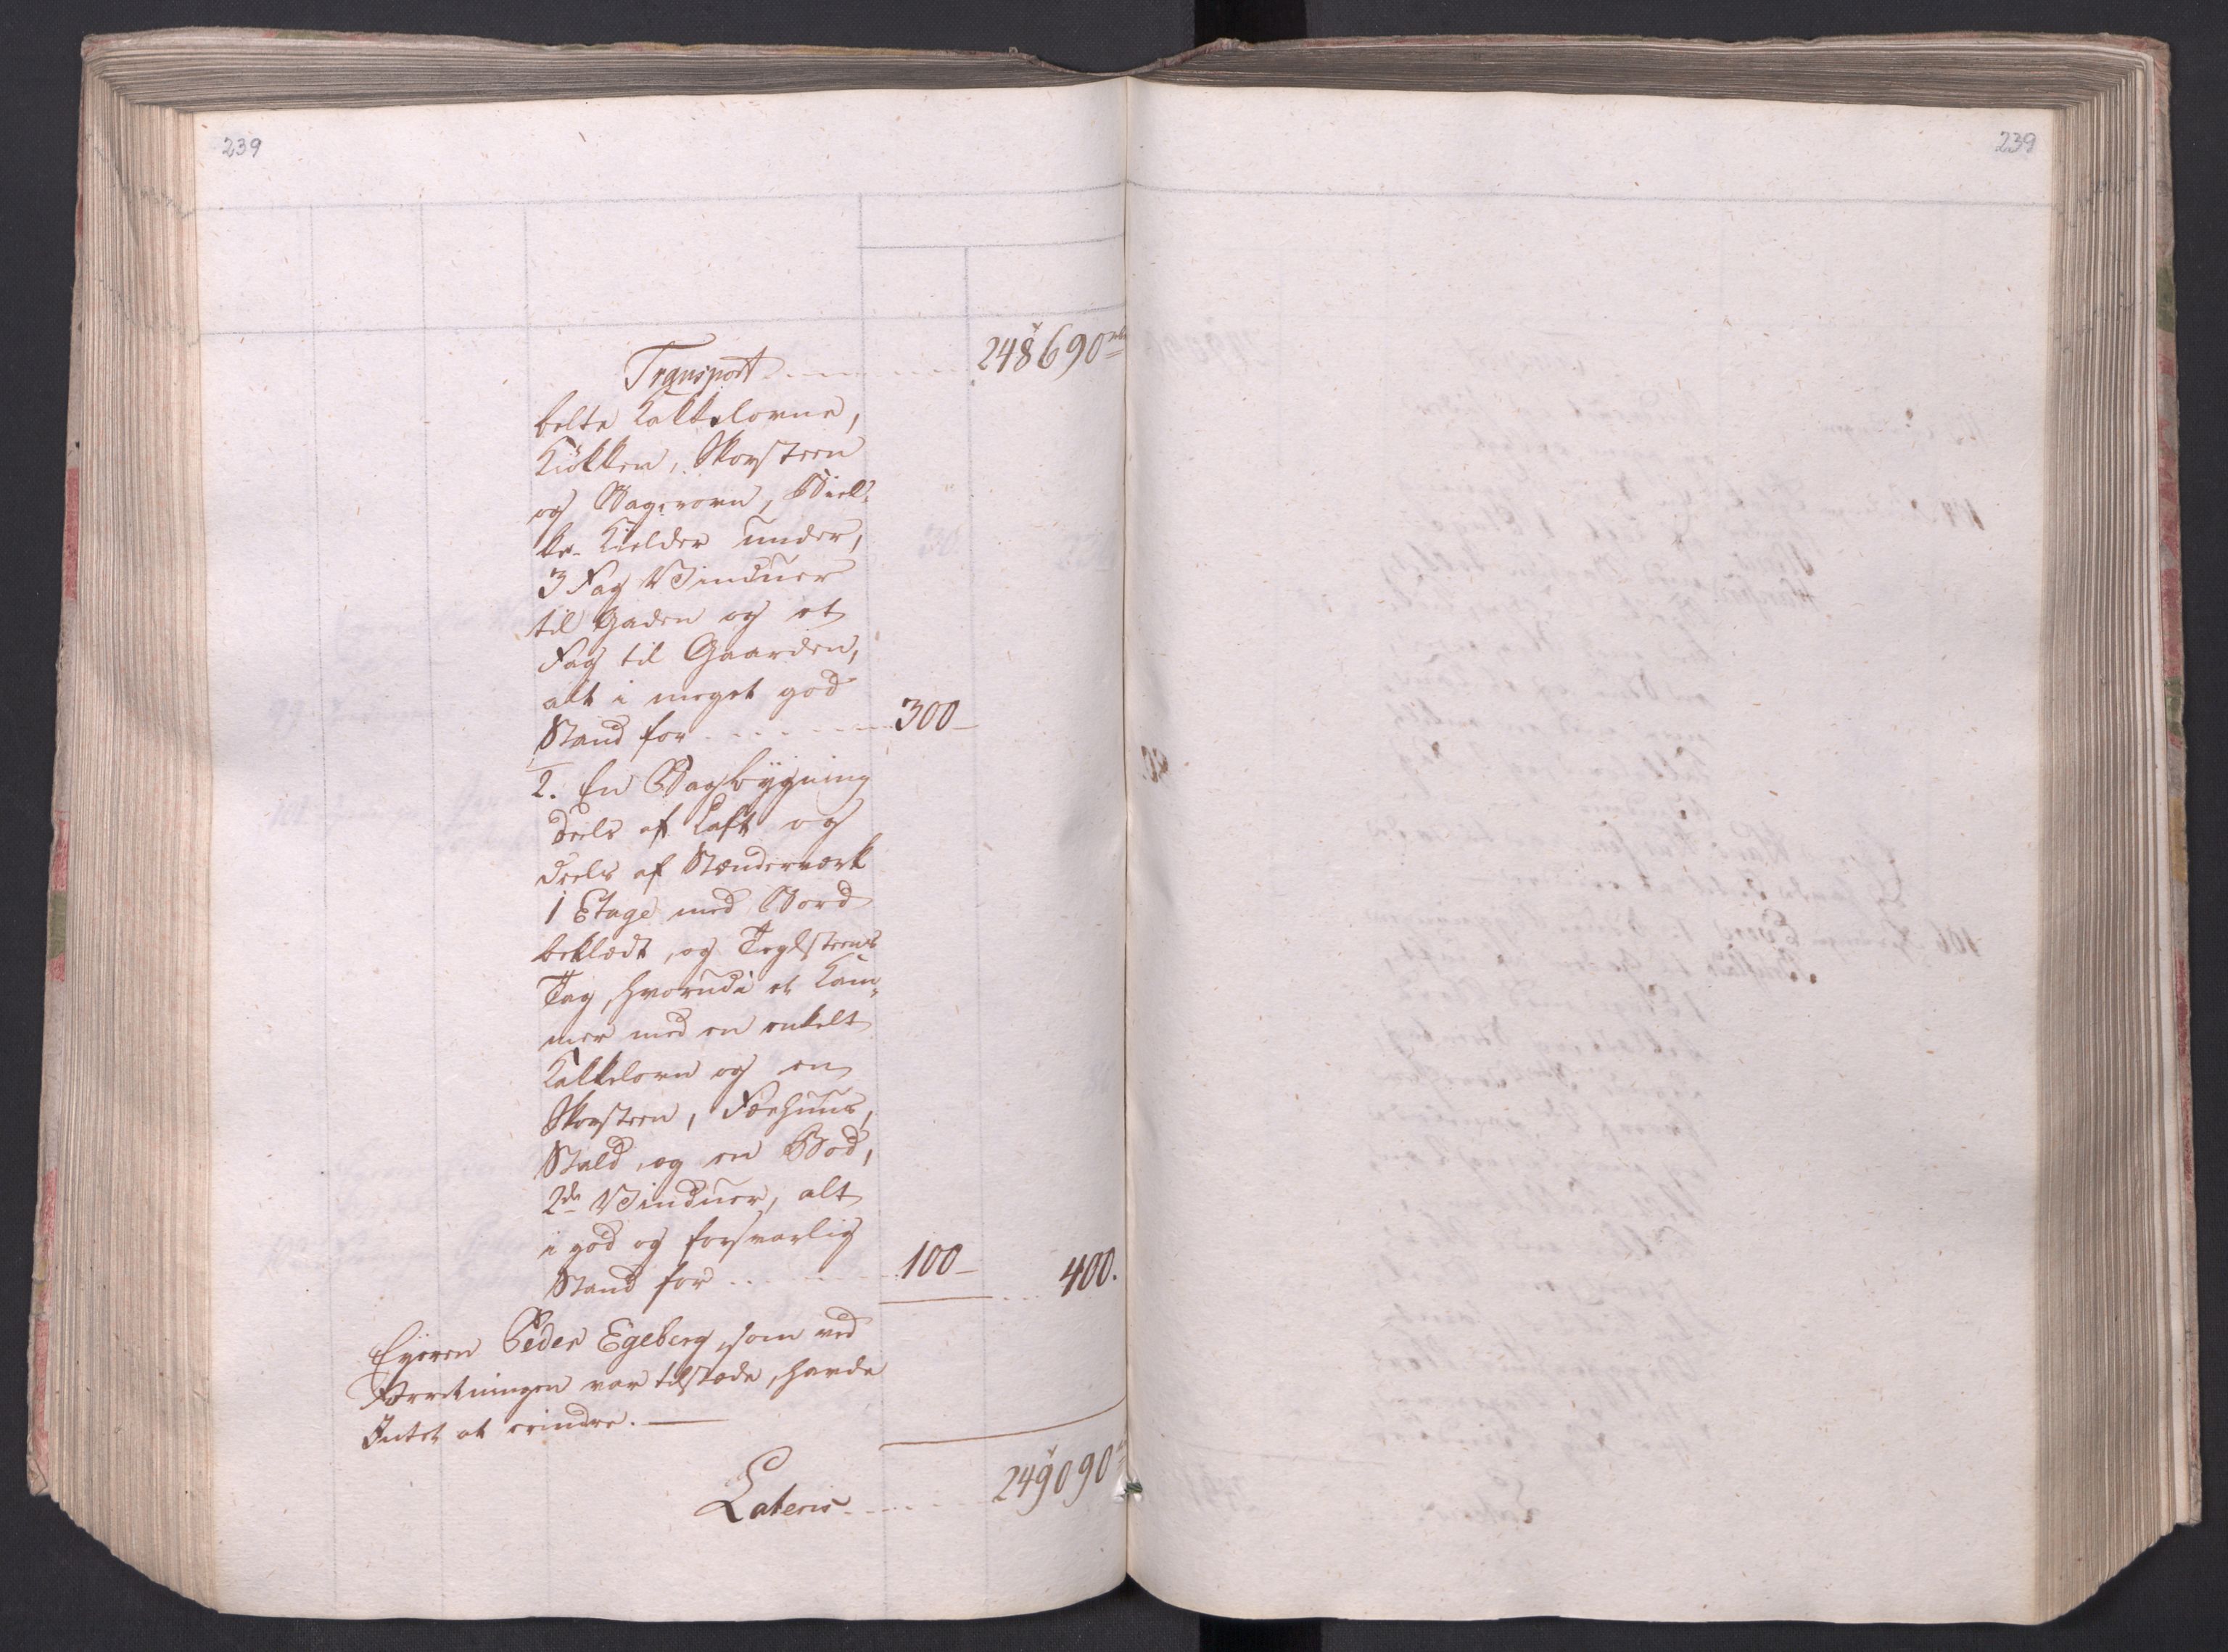 239
239
Transport - - - - 248690 rbd
belte Kakkelovne,
Kiökken, Skorsteen
og Bagerovn, Biel-
ke Kielder under,
3 Fag Vinduer
til Gaden og et
Fag til Gaarden,
alt i meget god
Stand for - - - - - 300 -
2. En Bagbÿgning
deels af Laft og
deels af Stænderværk
1 Etage med Bord
beklædt, og Teglsteens
Tag, hvorudi et Kam-
mer med en enkelt
Kakkelovn og en
Skorsteen, Fæehuus,
Stald, og en Bod,
2de Vinduer, alt
i god og forsvarlig
Stand for - - - - 100 - - - 400.
Eyeren Peder Egeberg, som ved
Forretningen var tilstæde, havde
Intet at erindre. —
Lateris - - - - 249090